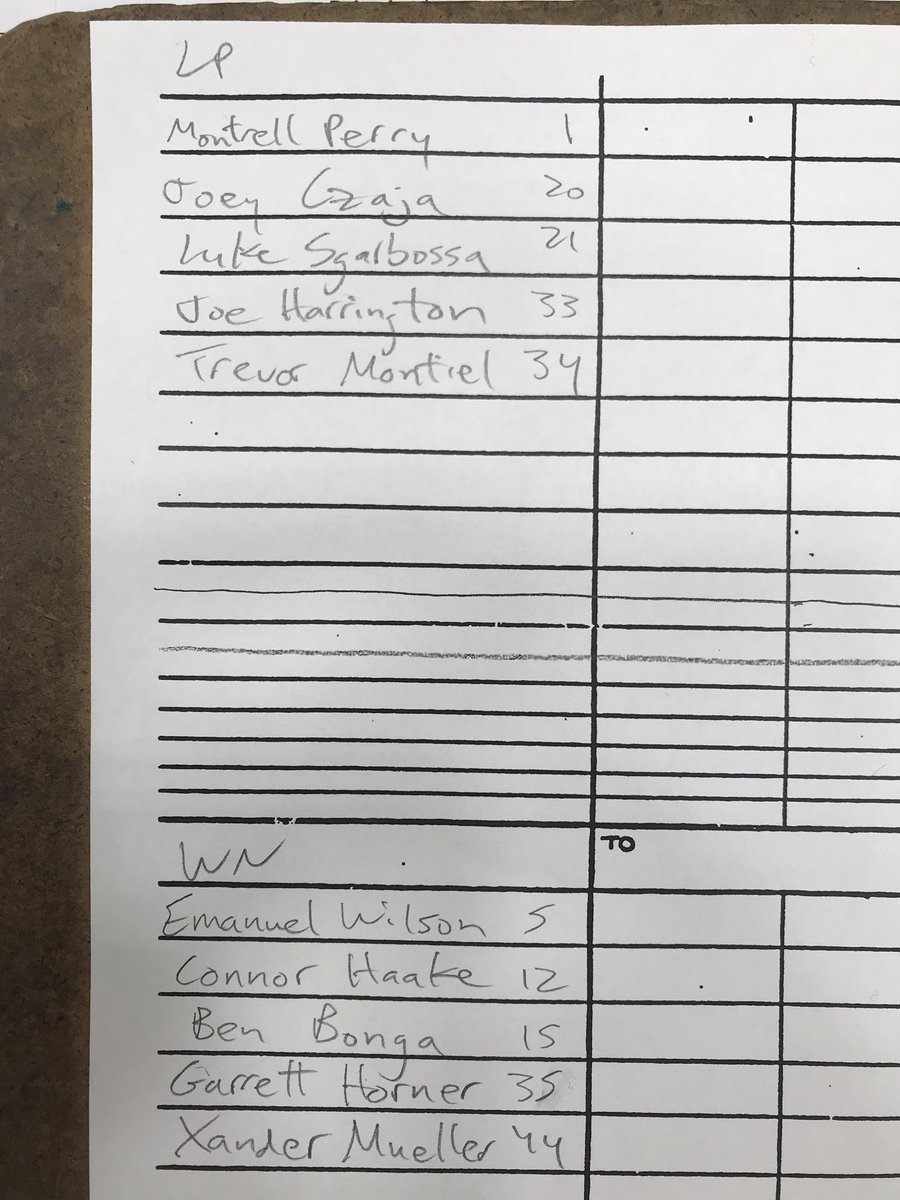 LP
Montrell Perry 1
Joey Czaja 20
Luke Sgarbossa 21
Joe Harrington 33
Trevor Montiel 34
WN
TO
Emanuel Wilson 5
Connor Haake 12
Ben Bonga 15
Garrett Horner 35
Xander Mueller 44